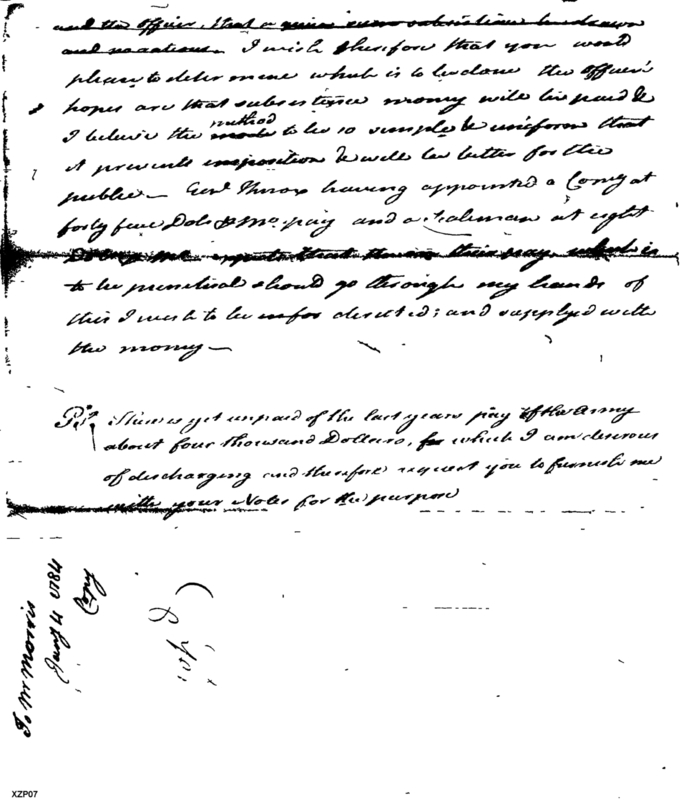 and the officer, that a
and vexations. I wish therefore that you would
please to determine which is to be done the officers
hopes are that subsistence money will be paid &
method
I believe the mode to be so simple & uniform that
it prevents imposition & will be better for the
public — Genl Knox having appointed a Comy at
forty five Dols & Mo. pay and a at eight
their pay, which is
to be punctual should go through my hands of
this I wish to be directed; and supplyd with
the money —
P.S. There is yet unpaid of the last years pay of the Army
about four thousand Dollars, for which I am desirous
of discharging and therefore request you to furnish me
with your Notes for the purpose
To Mr Morris
Jany 4 1784
Copy
XZP07